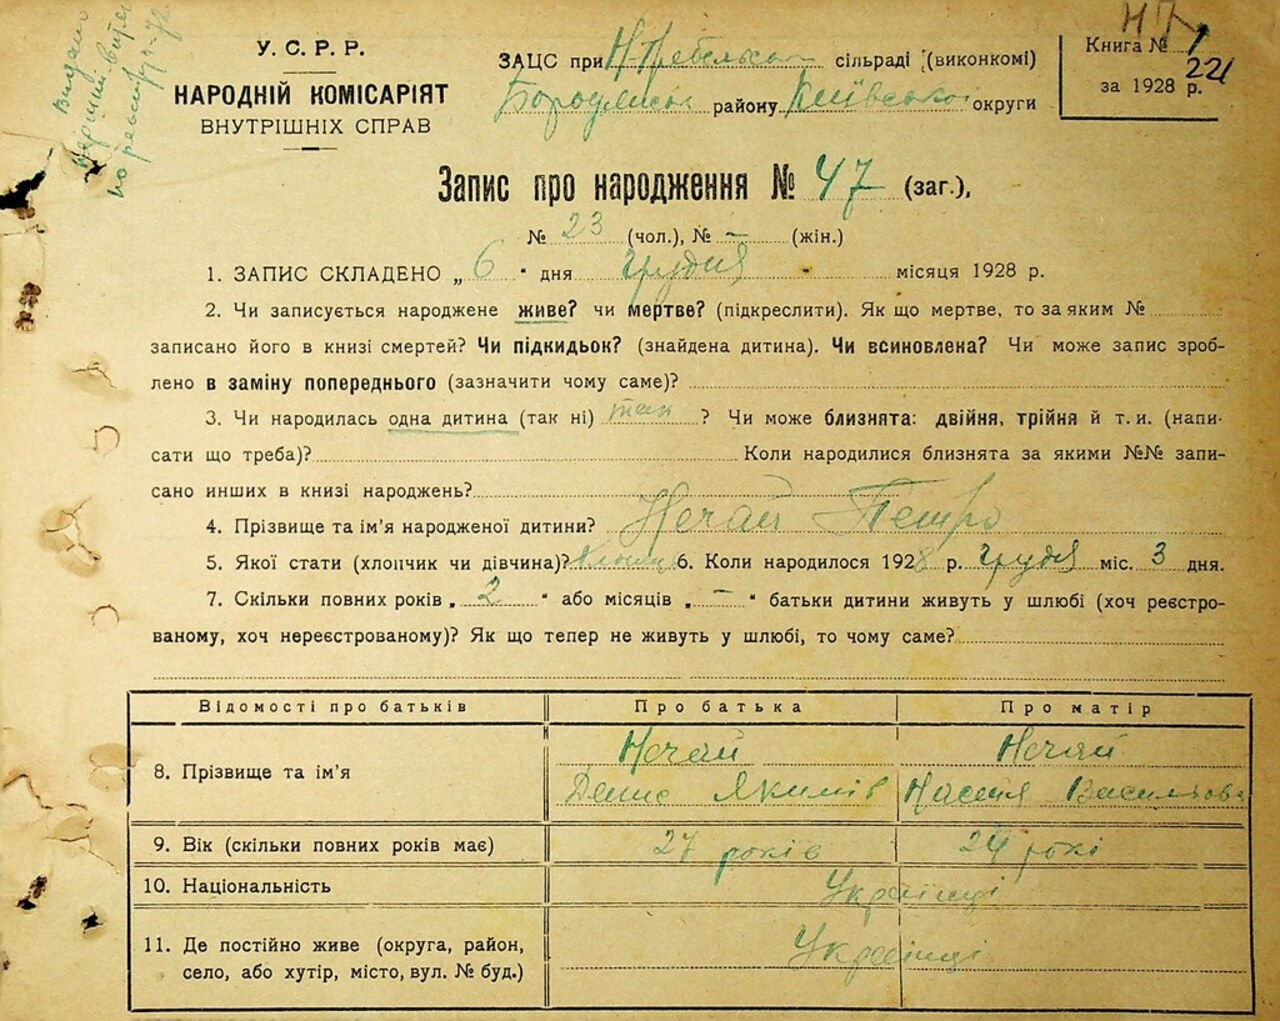 Видано
У. С. Р. Р.
НАРОДНІЙ КОМІСАРІЯТ
ВНУТРІШНІХ СПРАВ
ЗАЦС при Н-Гребельськ сільраді (виконкомі)
Бородянськ району Київської округи
Н 7
Книга № 1
за 1928 р. 221
Запис про народження № 47 (заг.),
№ 23 (чол.), № – (жін.)
1. ЗАПИС СКЛАДЕНО „ 6 " дня грудня місяця 1928 р.
2. Чи записується народжене живе? чи мертве? (підкреслити). Як що мертве, то за яким №
записано його в книзі смертей? Чи підкидьок? (знайдена дитина). Чи всиновлена? Чи може запис зроб-
лено в заміну попереднього (зазначити чому саме)?
3. Чи народилась одна дитина (так ні) так ? Чи може близнята: двійня, трійня й т. и. (напи-
сати що треба)? Коли народилися близнята за якими №№ запи-
сано инших в книзі народжень?
4. Прізвище та ім'я народженої дитини? Нечай Петро
5. Якої стати (хлопчик чи дівчина)? 6. Коли народилося 1928 р. грудня міс. 3 дня.
7. Скільки повних років „ 2 " або місяців „ – " батьки дитини живуть у шлюбі (хоч реєстро-
ваному, хоч нереєстрованому)? Як що тепер не живуть у шлюбі, то чому саме?
Відомості про батьків Про батька Про матір
8. Прізвище та ім'я Нечай Денис Якимів Нечай Настя Васильова
9. Вік (скільки повних років має) 27 років 24 рокі
10. Національність Українці
11. Де постійно живе (округа, район, Українці
село, або хутір, місто, вул. № буд.)